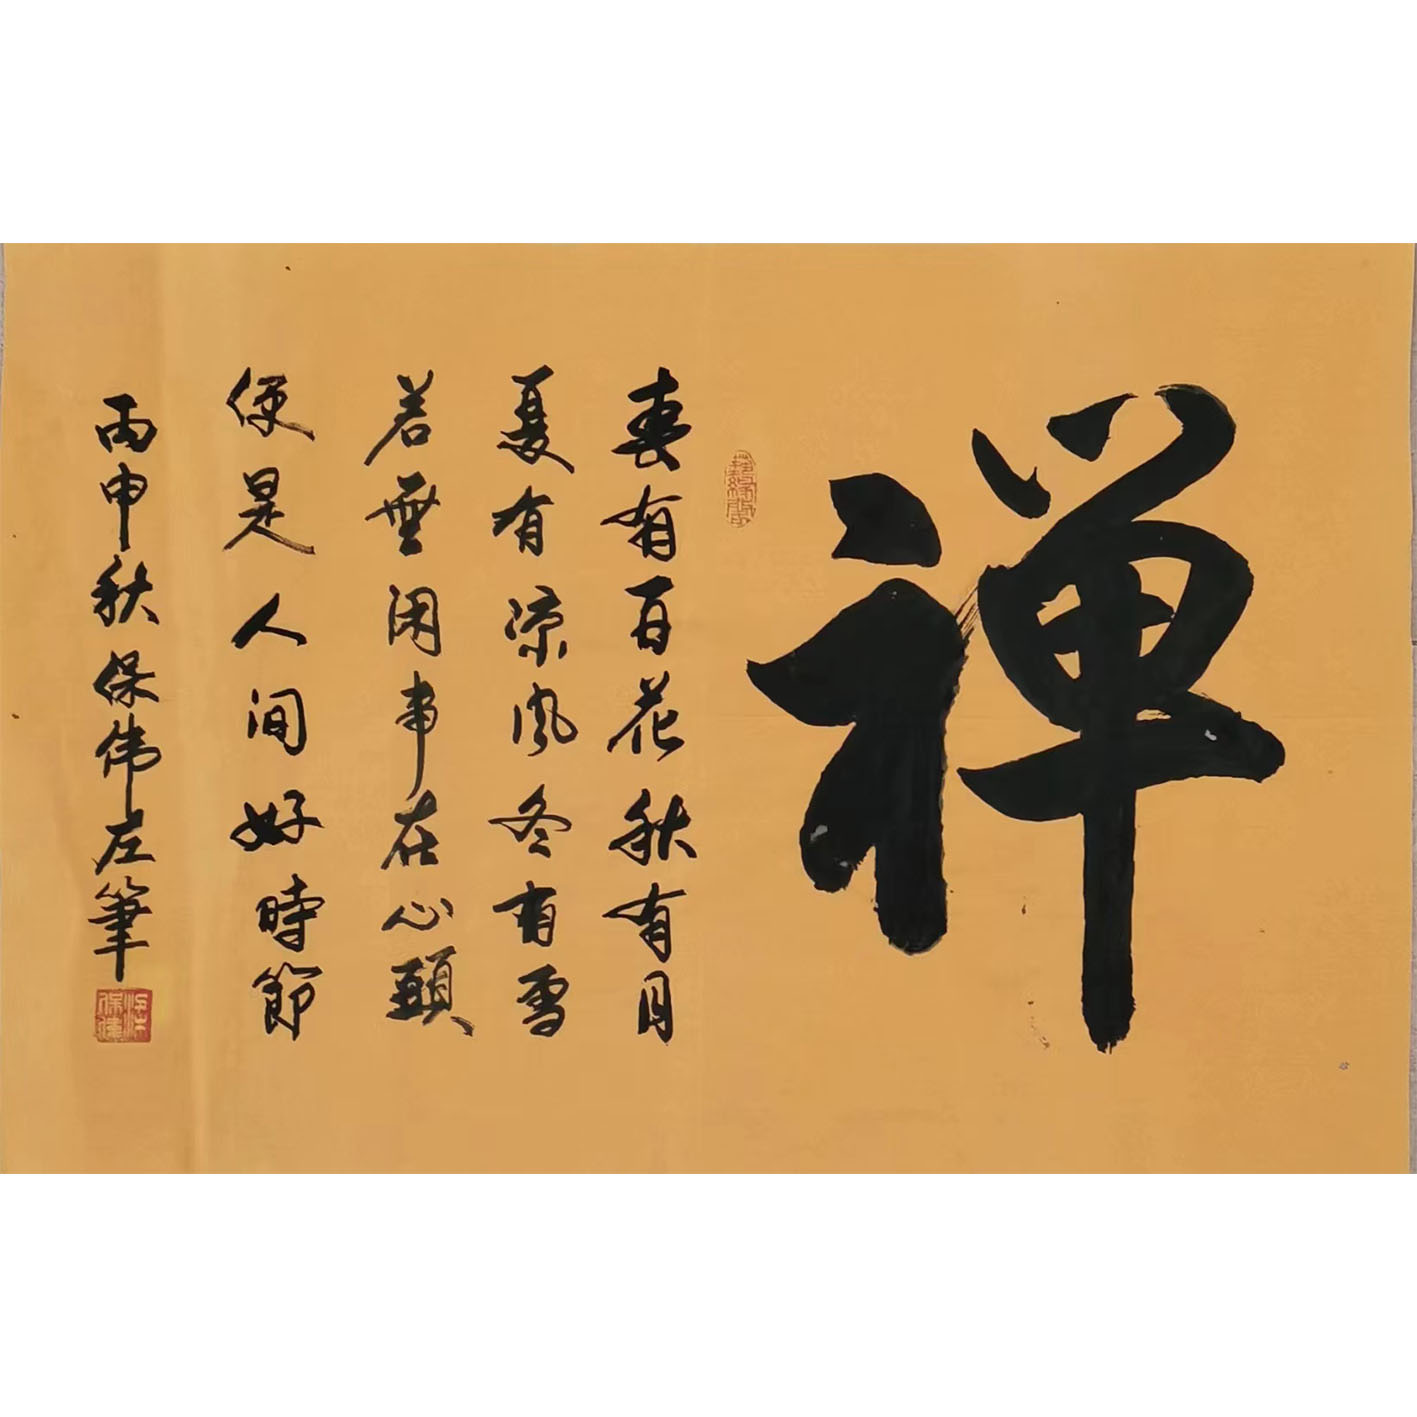 禅
春有百花秋有月
夏有凉风冬有雪
若無闲事在心頭
便是人间好時節
丙申秋保伟左筆